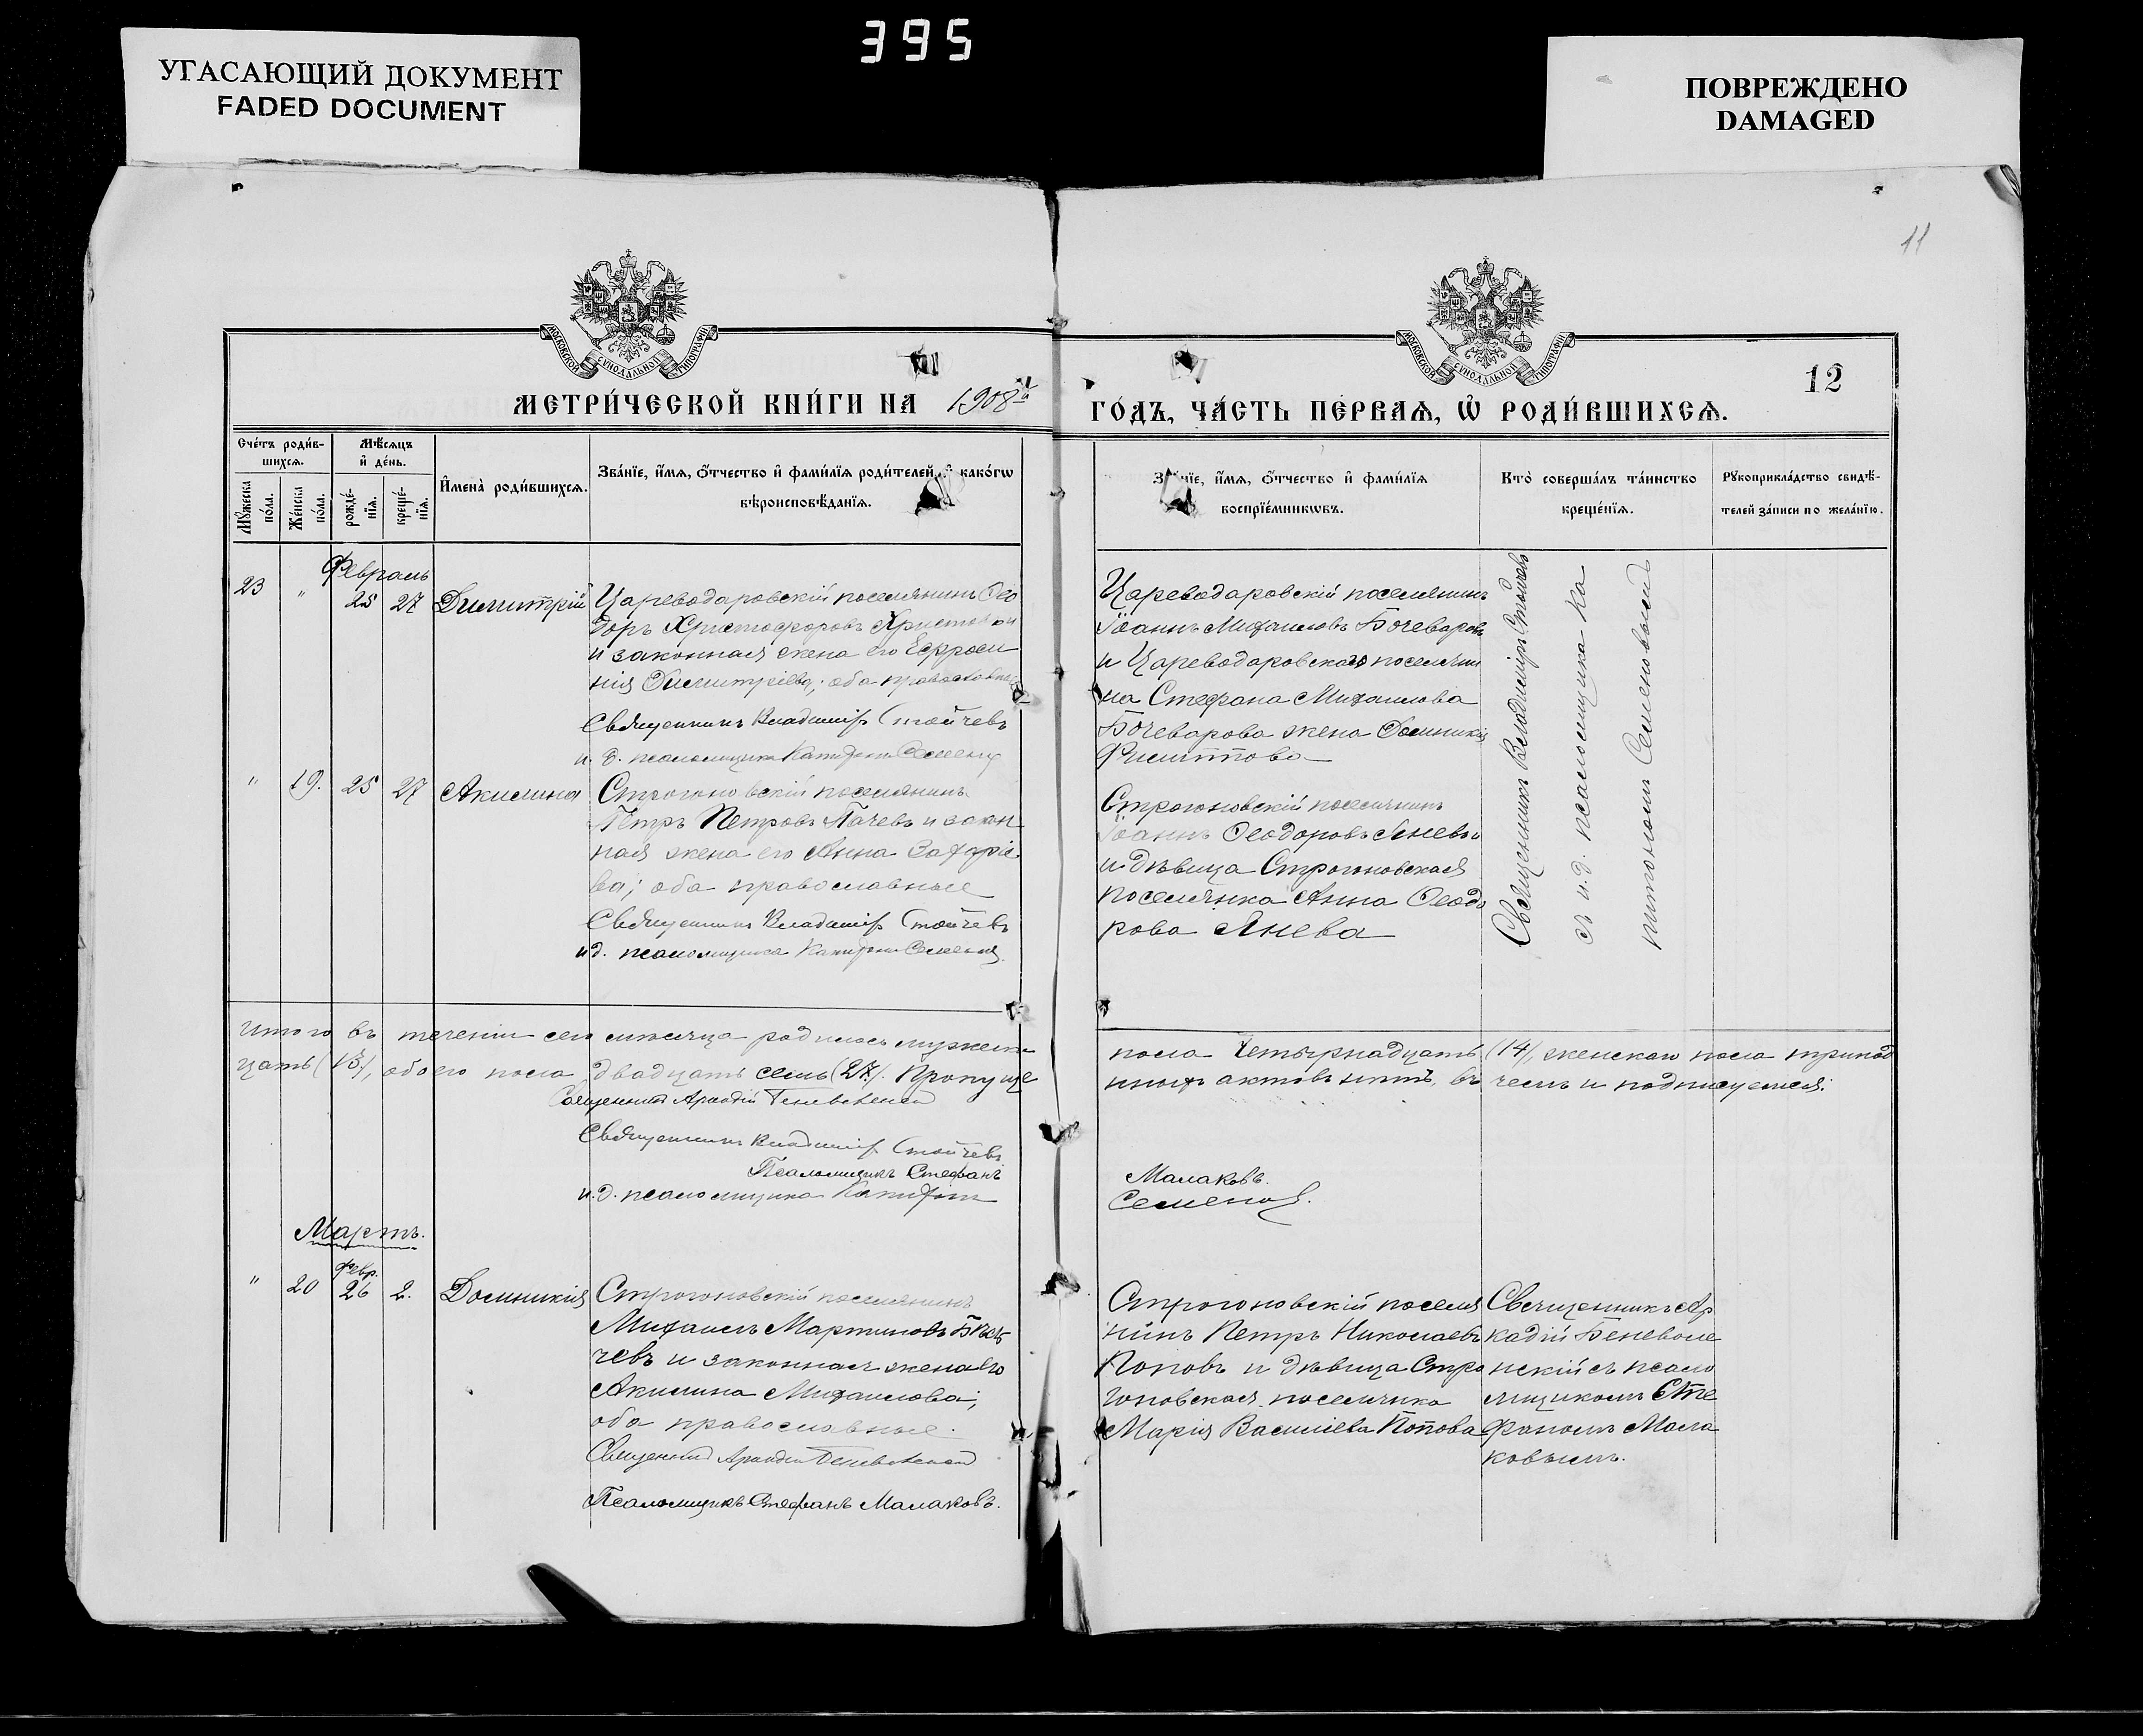 395
УГАСАЮЩИЙ ДОКУМЕНТ
FADED DOCUMENT
ПОВРЕЖДЕНО
DAMAGED
11
МОСКОВСКОЙ СѴНОДАЛЬНОЙ ТИПОГРАФІИ
МОСКОВСКОЙ СѴНОДАЛЬНОЙ ТИПОГРАФІИ
12
МЕТРИ́ЧЕСКОЙ КНИ́ГИ НА 1908й
ГО́ДЪ, ЧА́СТЬ ПЕ́РВАѦ, Ѡ҆ РОДИ́ВШИХСѦ.
Сче́тъ роди́в-
шихсѧ.
Мѣ́сѧцъ
и҆ де́нь.
И҆мена̀ роди́вшихсѧ.
Зва́нїе, и҆́мѧ, ѻ҆́тчество и҆ фами́лїѧ роди́телей, и҆ како́гѡ
вѣроисповѣ́данїѧ.
Мꙋ́жеска
по́ла.
Же́нска
по́ла.
рожде́-
нїѧ.
креще́-
нїѧ.
Зва́нїе, и҆́мѧ, ѻ҆́тчество и҆ фами́лїѧ
воспрїе́мникѡвъ.
Кто̀ соверша́лъ та́инство
креще́нїѧ.
Рꙋкоприкла́дство свидѣ́-
телей за́писи по жела́нїю.
Февраль
23 " 25 27 Димитрій
Цареводаровскій поселянинъ Ѳео
доръ Христофоровъ Христовъ
и законная жена его Ефроси
нія Димитріева; оба православные
Священникъ Владиміръ Стойчевъ
и. д. псаломщика Капитонъ Семеновъ
Цареводаровскій поселянинъ
Іоаннъ Михаиловъ Бочеваровъ
и Цареводаровскаго поселяни
на Стефана Михаилова
Бочеварова жена Домникія
Филиппова
Священникъ Владиміръ Стойчевъ
съ и. д. псаломщика Ка
питономъ Семеновымъ
" 19. 25 27 Акилина
Строгоновскій поселянинъ
Петръ Петровъ Пачевъ и закон
ная жена его Анна Захаріе
ва; оба православные
Священникъ Владиміръ Стойчевъ
и.д. псаломщика Капитонъ Семеновъ.
Строгоновскій поселянинъ
Іоаннъ Ѳеодоровъ Яневъ
и дѣвица Строгоновская
поселянка Анна Ѳеодо
рова Янева
Итого въ теченіи сего мѣсяца родилось мужеска
пола четырнадцать (14), женскаго пола тринад
цать (13), обоего пола двадцать семь (27). Пропуще
нныхъ актовъ нѣтъ, въ чемъ и подписуемся:
Священникъ Аркадій Беневоленскій
Священникъ Владиміръ Стойчевъ
Псаломщикъ Стефанъ
Малаковъ.
и. д. псаломщика Капитонъ
Семеновъ.
Мартъ.
" 20 Февр. 26 2. Домникія
Строгоновскій поселянинъ
чевъ и законная жена его
Акилина Михаилова;
оба православные.
Священникъ Аркадій Беневоленскій
Псаломщикъ Стефанъ Малаковъ.
Строгоновскій поселя
нинъ Петръ Николаевъ
Поповъ и дѣвица Стро
гоновская поселянка
Марія Василіева Попова
Священникъ Ар
кадій Беневоле
нскій съ псало
мщикомъ Сте
фаномъ Мала
ковымъ.